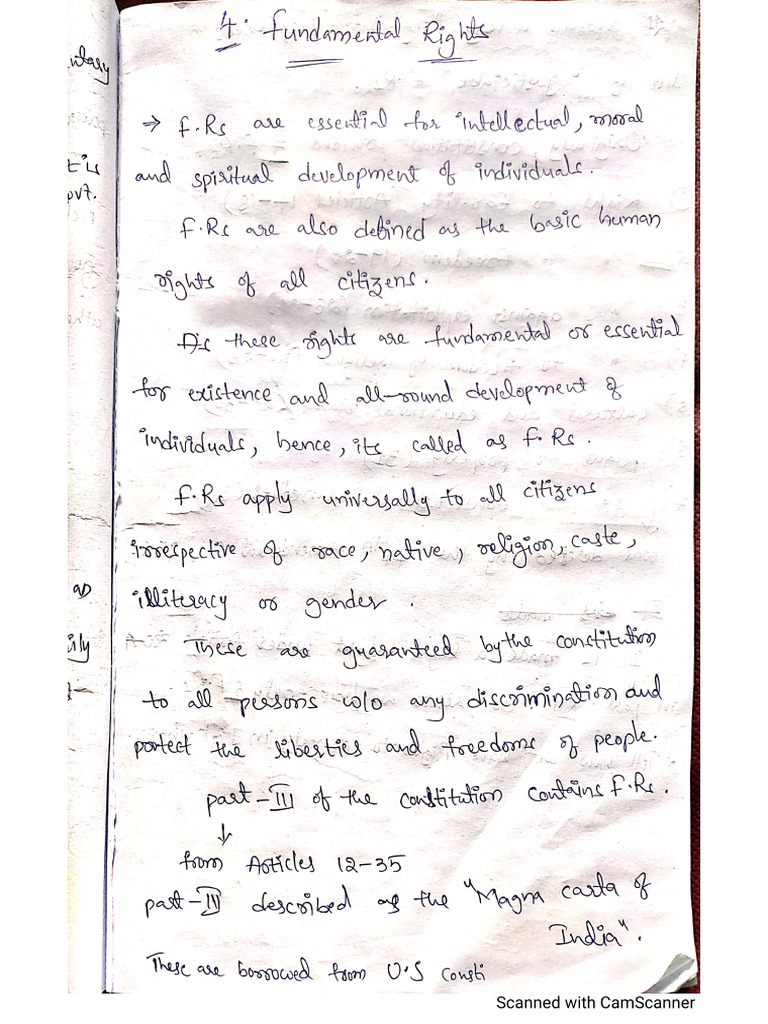 4. Fundamental Rights
→ F.Rs are essential for intellectual, moral
and spiritual development of individuals.
F.Rs are also defined as the basic human
rights of all citizens.
these rights are fundamental or essential
for existence and all-round development of
individuals, hence, its called as F.Rs.
F.Rs apply universally to all citizens
irrespective of race, native, religion, caste,
illiteracy or gender.
These are guaranteed by the constitution
to all persons w/o any discrimination and
portect the liberties and freedoms of people.
part-III of the constitution contains F.Rs.
↓
from Articles 12-35
part-III described as the "Magna carta of
India".
These are borrowed from U.S Consti
Scanned with CamScanner